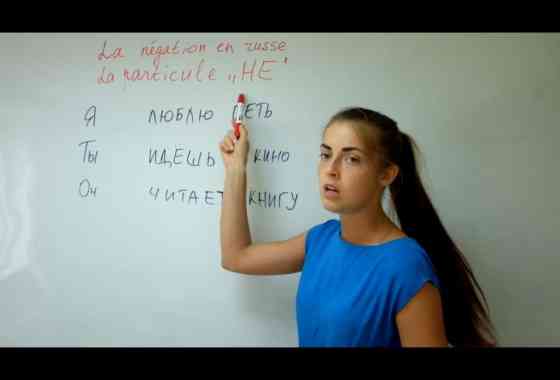 La négation en russe
La particule „НЕ"
Я ЛЮБЛЮ ПЕТЬ
Ты ИДЕШЬ КИНО
Он ЧИТАЕТ КНИГУ